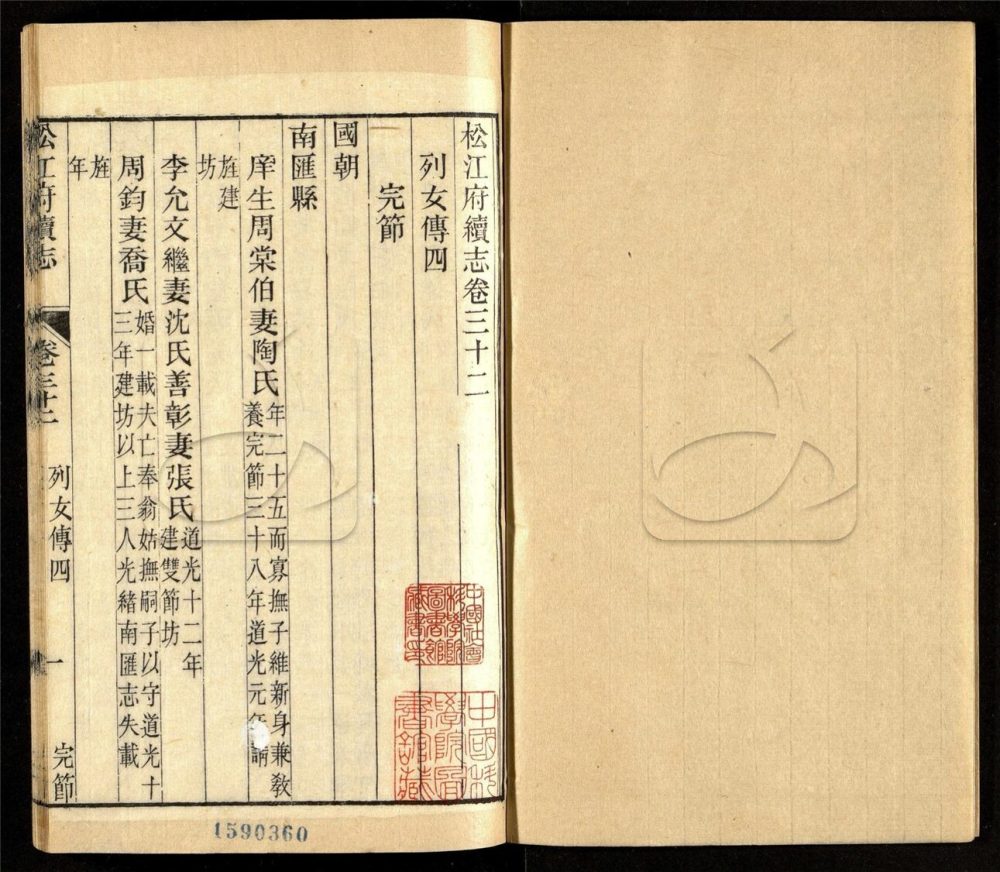 松江府續志卷三十二
列女傳四
完節
國朝
南匯縣
庠生周棠伯妻陶氏
年二十五而寡撫子維新身兼敎
養完節三十八年道光元年請
旌建
坊
李允文繼妻沈氏善彰妻張氏
道光十二年
建雙節坊
周鈞妻喬氏
婚一載夫亡奉翁姑撫嗣子以守道光十
三年建坊以上三人光緒南匯志失載
旌
年
松江府續志 卷三十二 列女傳四 一 完節
中國社會
科學院
圖書館
藏書印
中國科
學院圖
書館藏
1590360